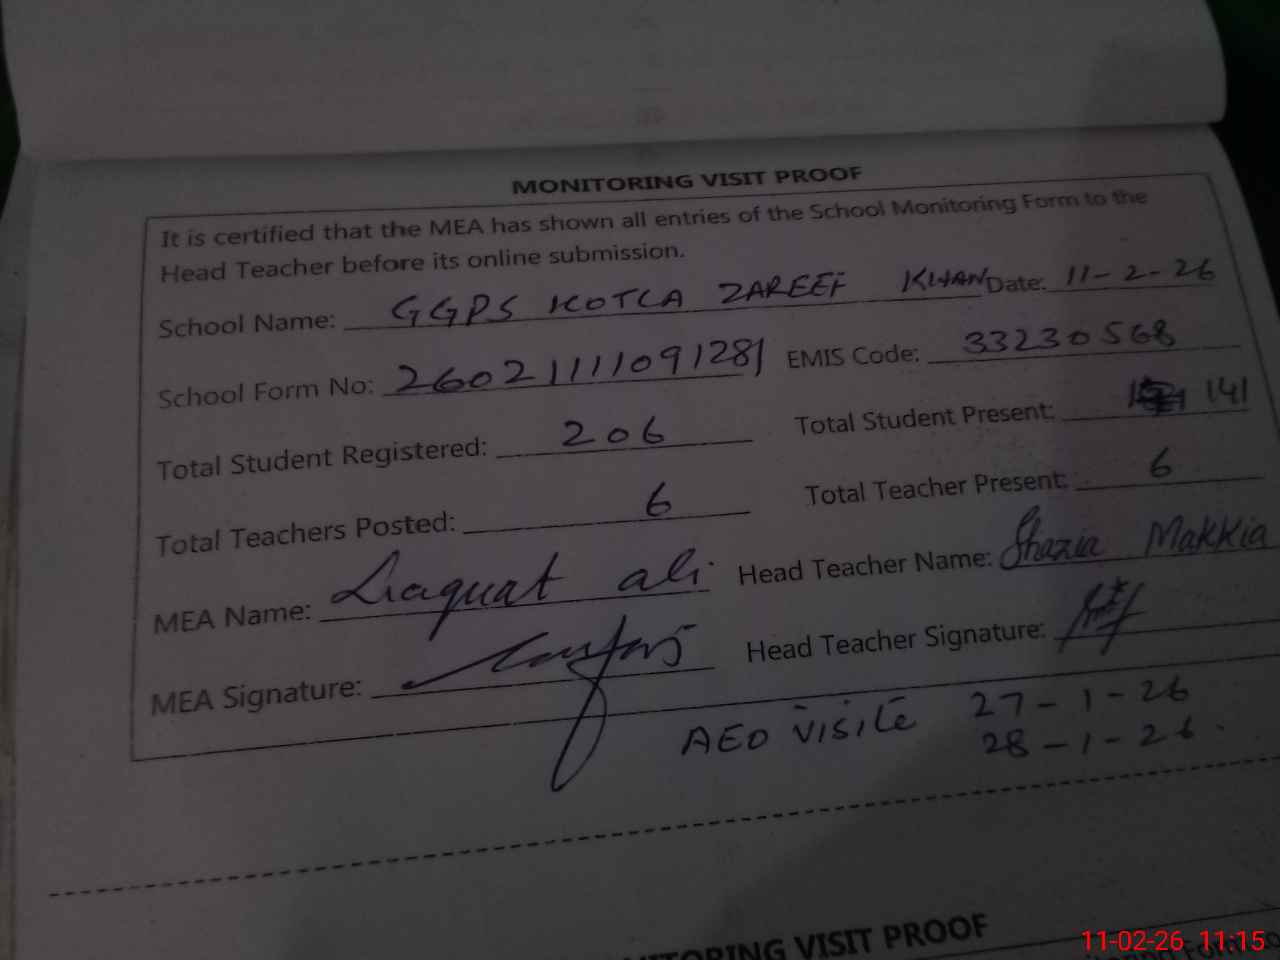 MONITORING VISIT PROOF
It is certified that the MEA has shown all entries of the School Monitoring Form to the
Head Teacher before its online submission.
School Name: GGPS KOTLA ZAREEF KHAN Date: 11-2-26
School Form No: 260211111091281 EMIS Code: 33230568
Total Student Registered: 206 Total Student Present: 141
Total Teachers Posted: 6 Total Teacher Present: 6
MEA Name: Liaquat ali Head Teacher Name: Shazia Makkia
MEA Signature: Head Teacher Signature:
AEO visite 27-1-26
28-1-26.
MONITORING VISIT PROOF
11-02-26 11:15